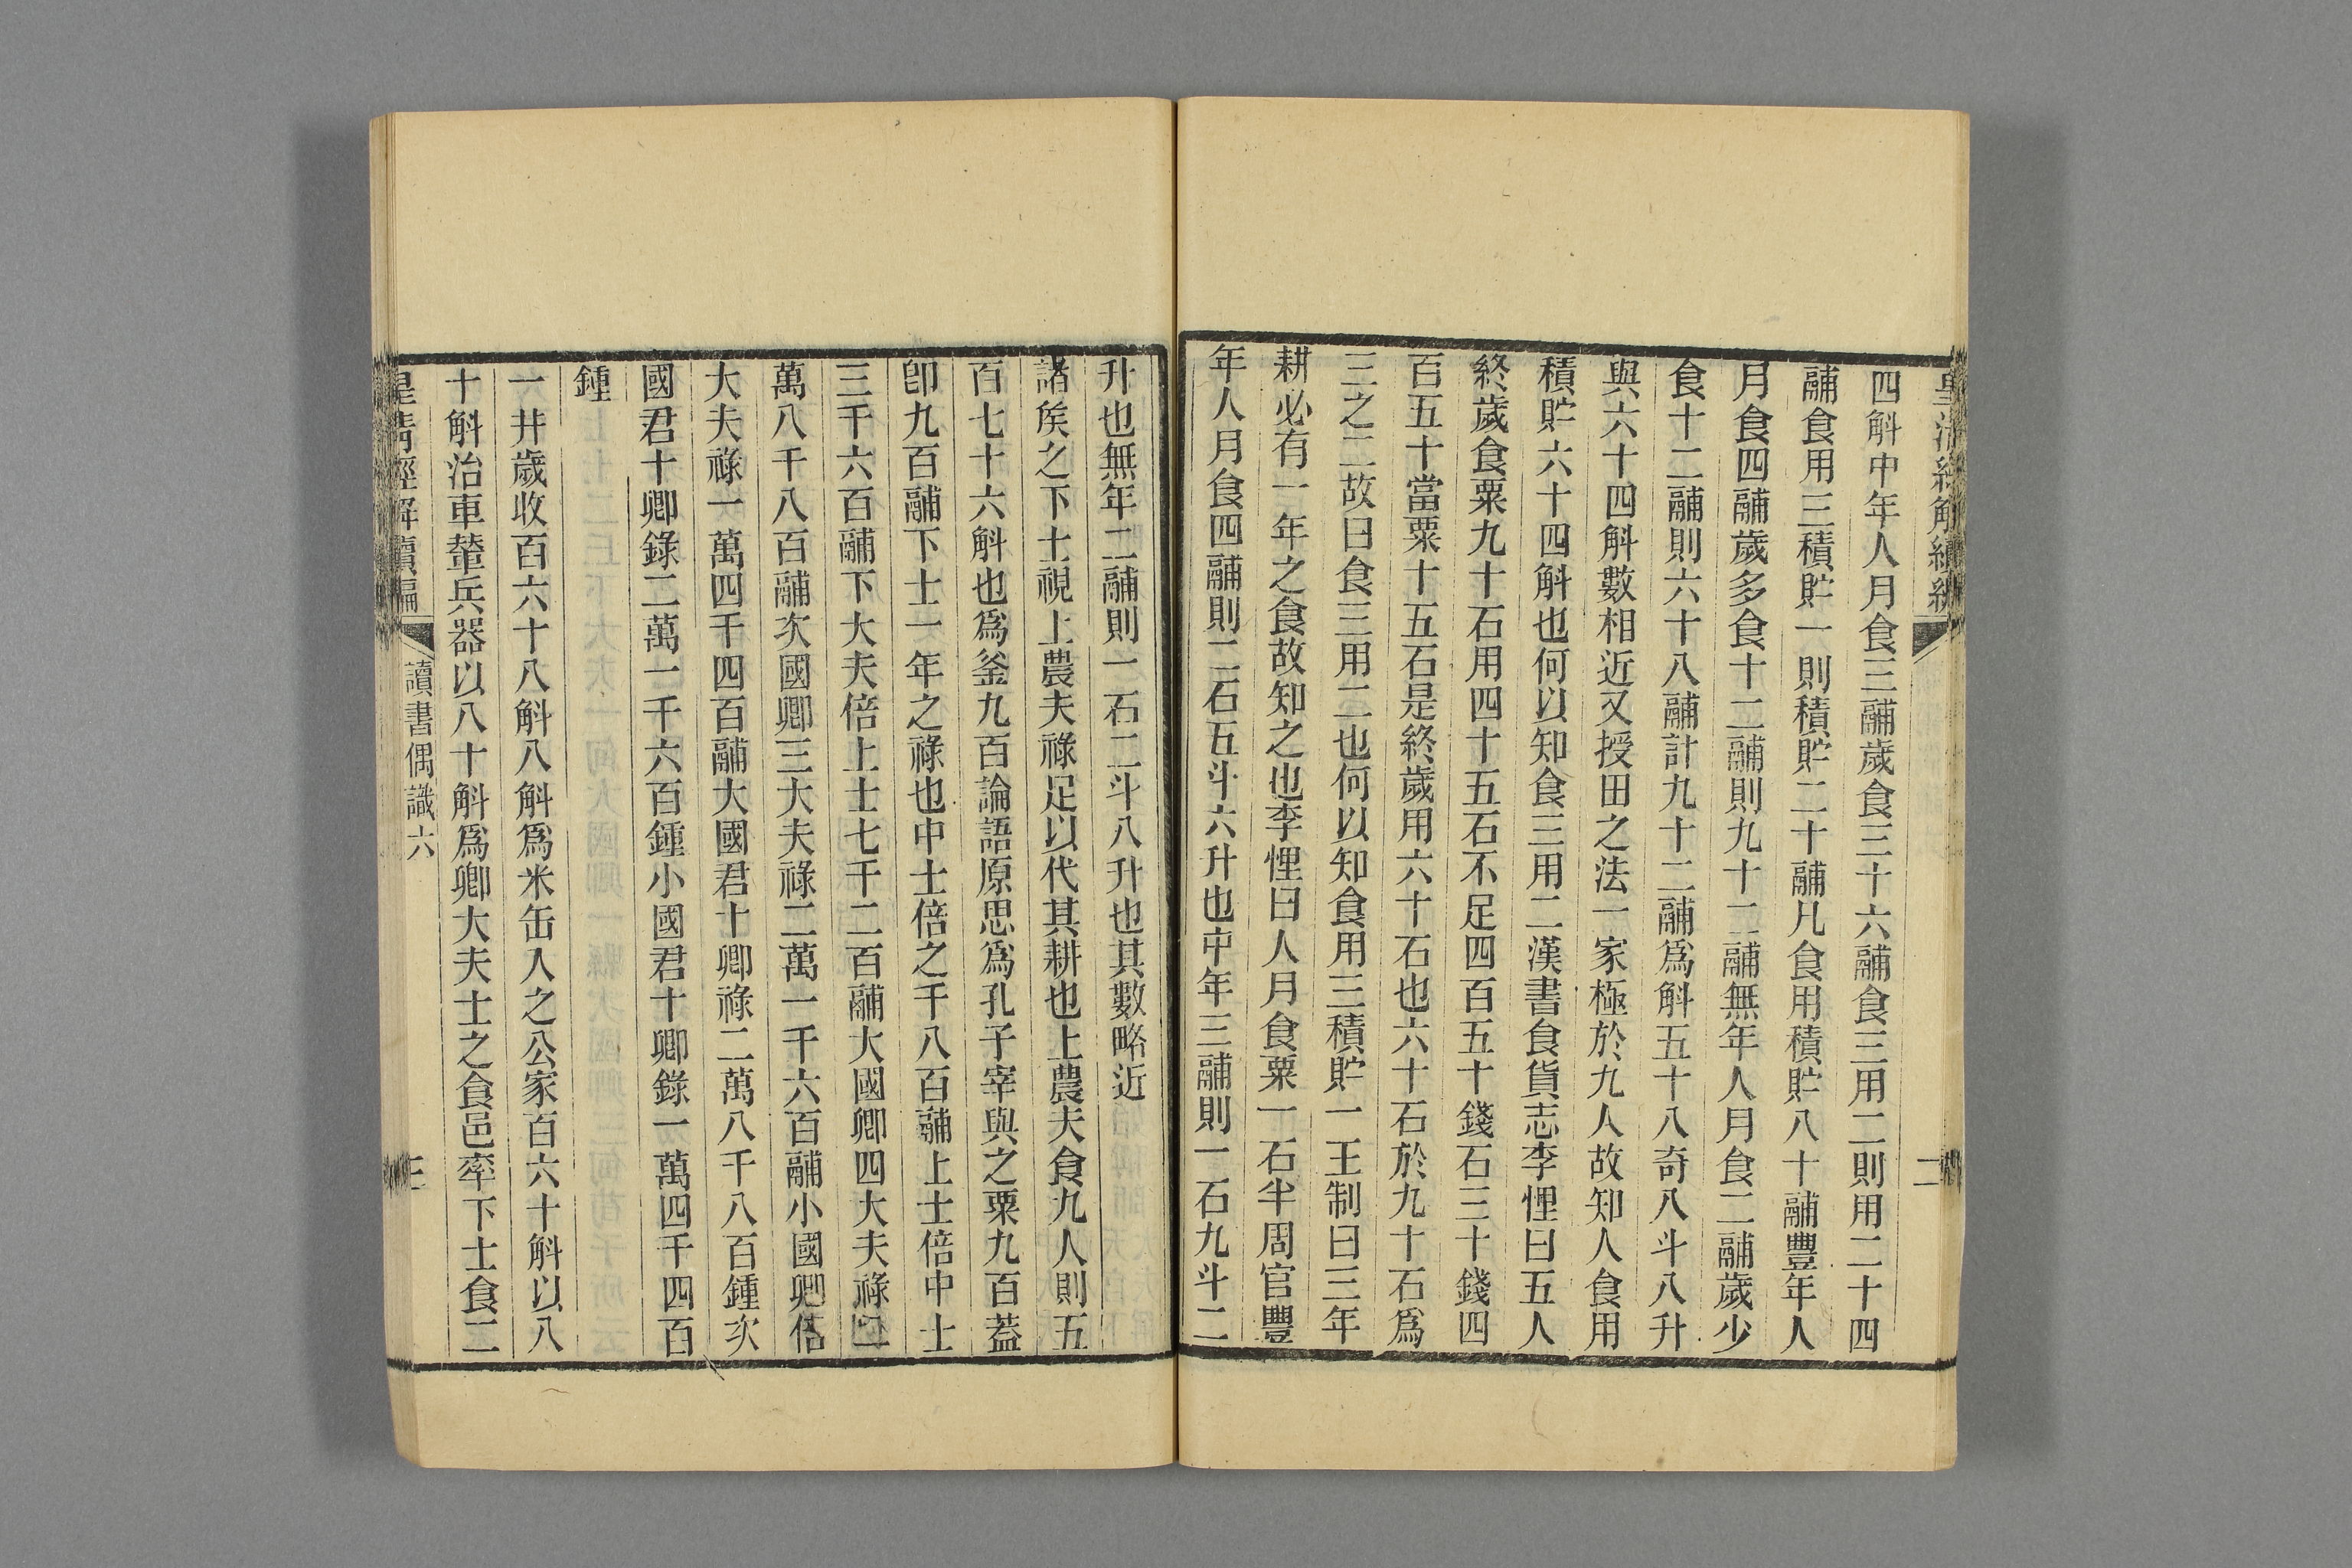 皇清經解續編
二
四斛中年人月食三鬴歲食三十六鬴食三用二則用二十四
鬴食用三積貯一則積貯二十鬴凡食用積貯八十鬴豐年人
月食四鬴歲多食十二鬴則九十二鬴無年人月食二鬴歲少
食十二鬴則六十八鬴計九十二鬴爲斛五十八奇八斗八升
與六十四斛數相近又授田之法一家極於九人故知人食用
積貯六十四斛也何以知食三用二漢書食貨志李悝曰五人
終歲食粟九十石用四十五石不足四百五十錢石三十錢四
百五十當粟十五石是終歲用六十石也六十石於九十石爲
三之二故曰食三用二也何以知食用三積貯一王制曰三年
耕必有一年之食故知之也李悝曰人月食粟一石半周官豐
年人月食四鬴則二石五斗六升也中年三鬴則一石九斗二
升也無年二鬴則一石二斗八升也其數略近
諸矦之下士視上農夫祿足以代其耕也上農夫食九人則五
百七十六斛也爲釜九百論語原思爲孔子宰與之粟九百葢
卽九百鬴下士一年之祿也中士倍之千八百鬴上士倍中士
三千六百鬴下大夫倍上士七千二百鬴大國卿四大夫祿二
萬八千八百鬴次國卿三大夫祿二萬一千六百鬴小國卿倍
大夫祿一萬四千四百鬴大國君十卿祿二萬八千八百鍾次
國君十卿錄二萬一千六百鍾小國君十卿錄一萬四千四百
鍾
一井歲收百六十八斛八斛爲米缶入之公家百六十斛以八
十斛治車輦兵器以八十斛爲卿大夫士之食邑率下士食二
皇清經解續編
讀書偶識六
三